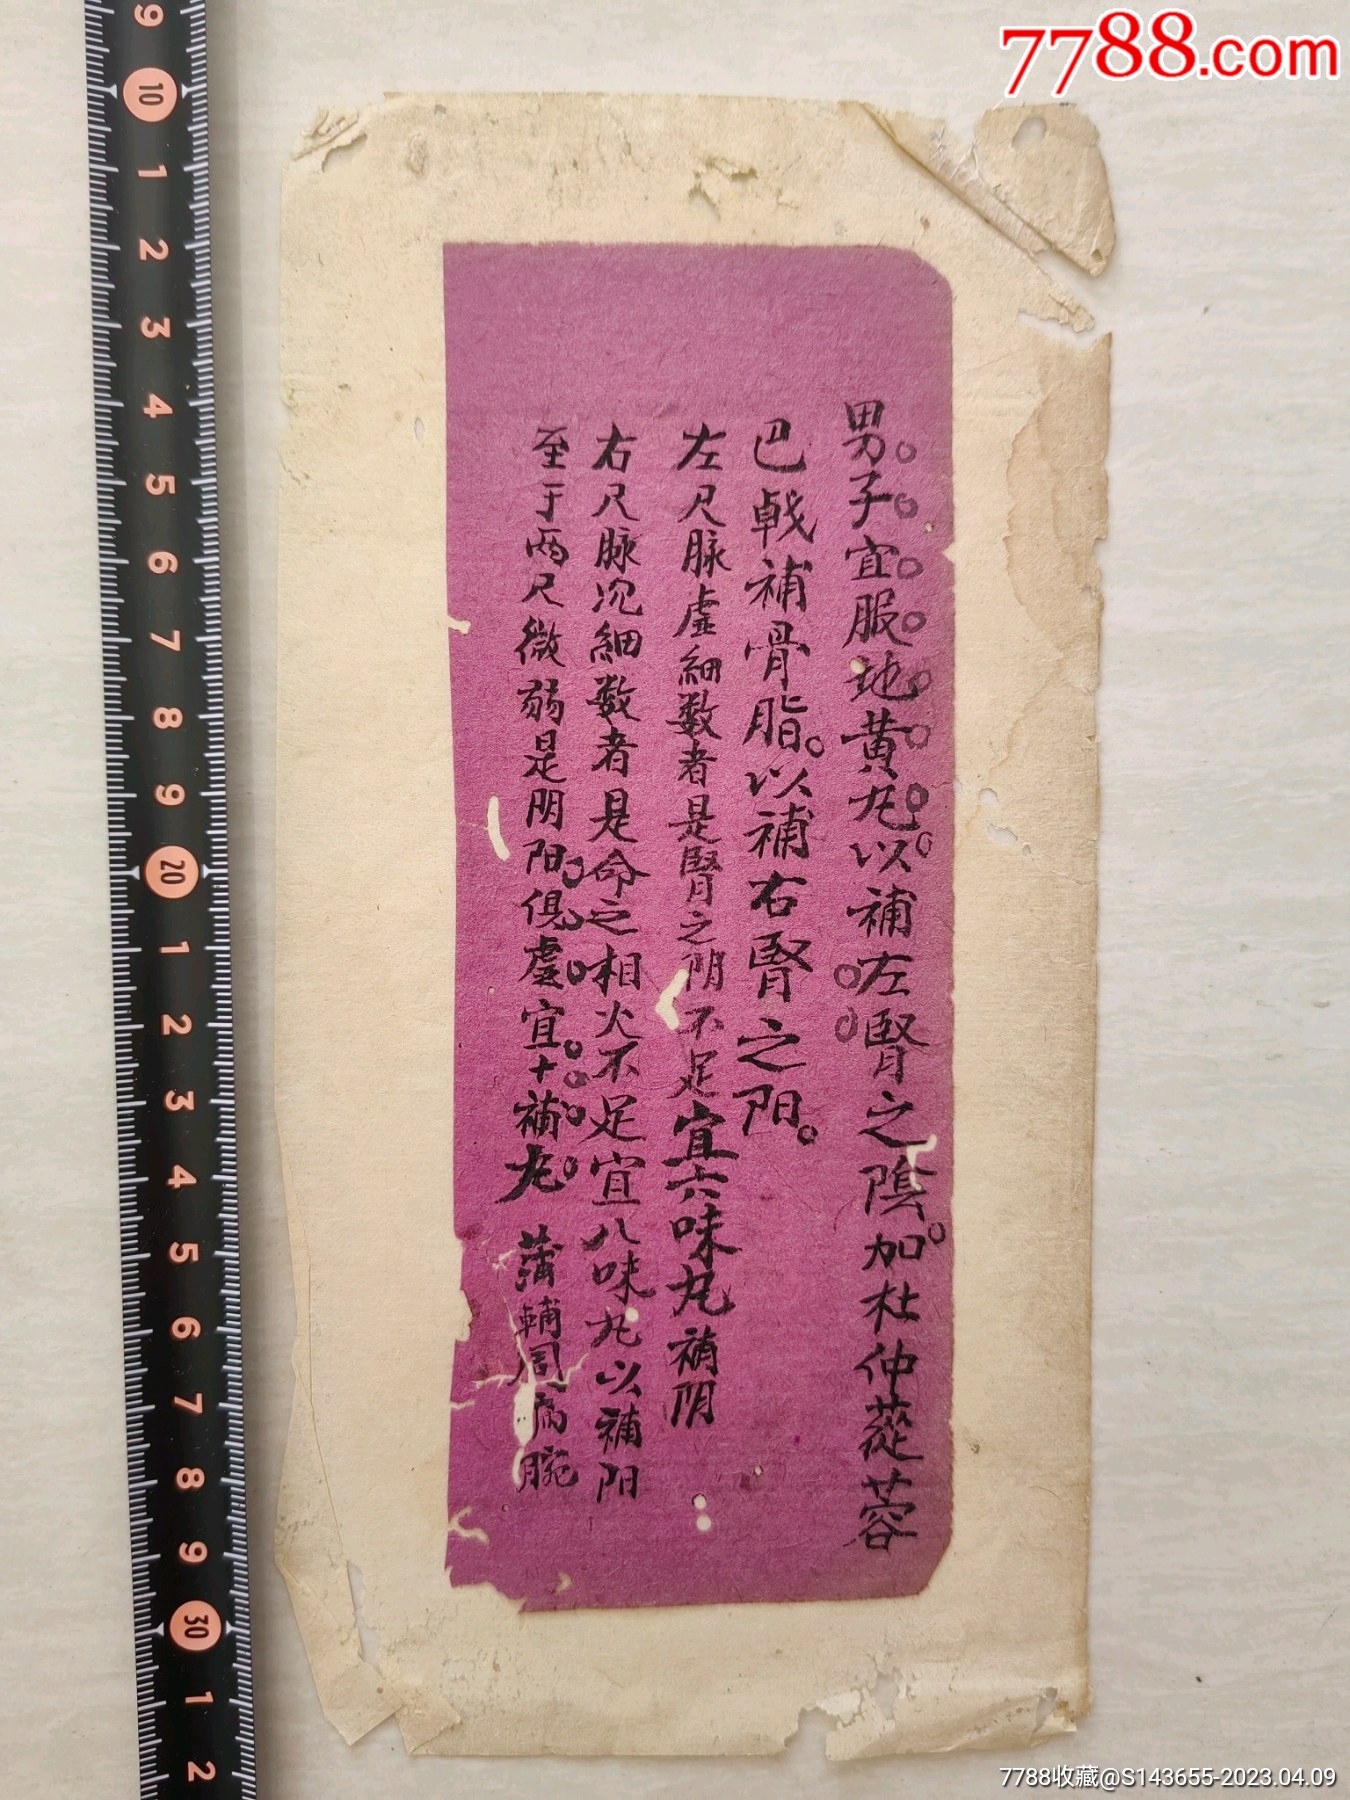 7788.com
男子宜服地黄丸以補左腎之陰。加杜仲蓯蓉
巴戟補骨脂。以補右腎之阳。
左尺脉虚細数者是腎之阴不足宜六味丸補阴
右尺脉沉細数者是命之相火不足宜八味丸以補阳
至于两尺微弱是阴阳俱虚宜十補丸 蒲輔周
9 10 1 2 3 4 5 6 7 8 9 20 1 2 3 4 5 6 7 8 9 30 1 2
7788收藏@S143655-2023.04.09